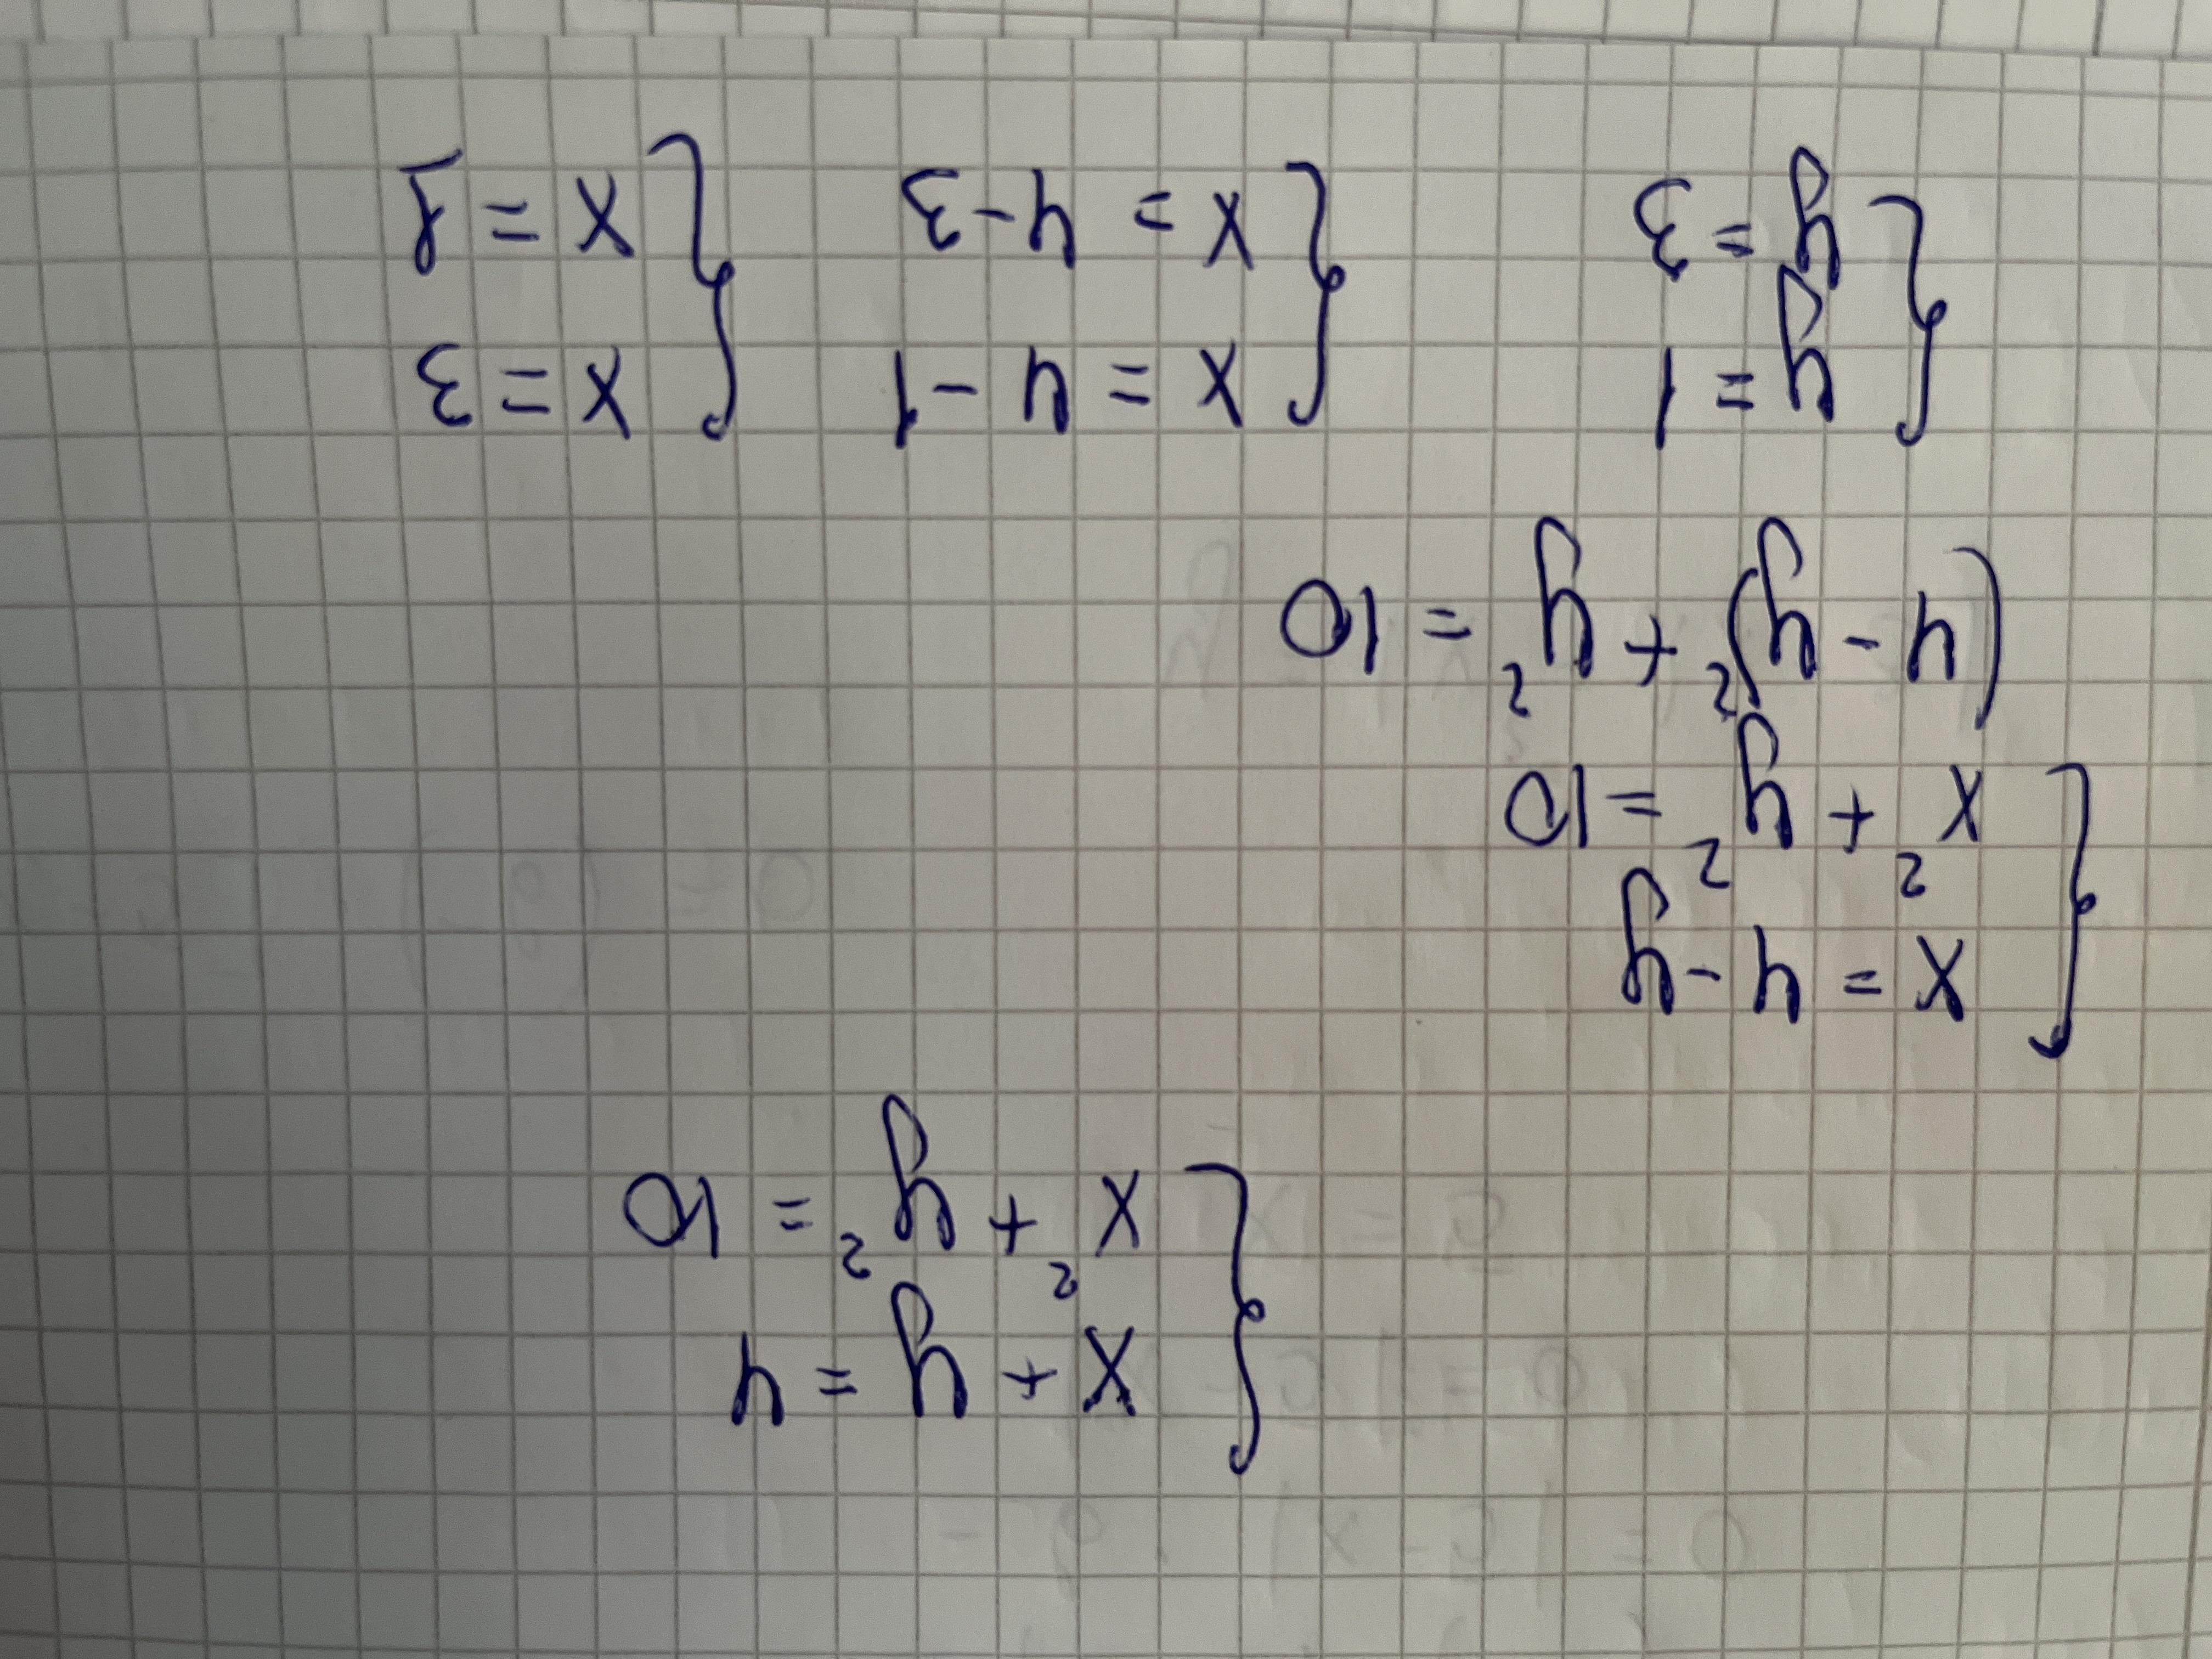 x + y = 4
x² + y² = 10
x = 4 - y
x² + y² = 10
(4 - y)² + y² = 10
y = 1 x = 4 - 1 x = 3
y = 3 x = 4 - 3 x = 1